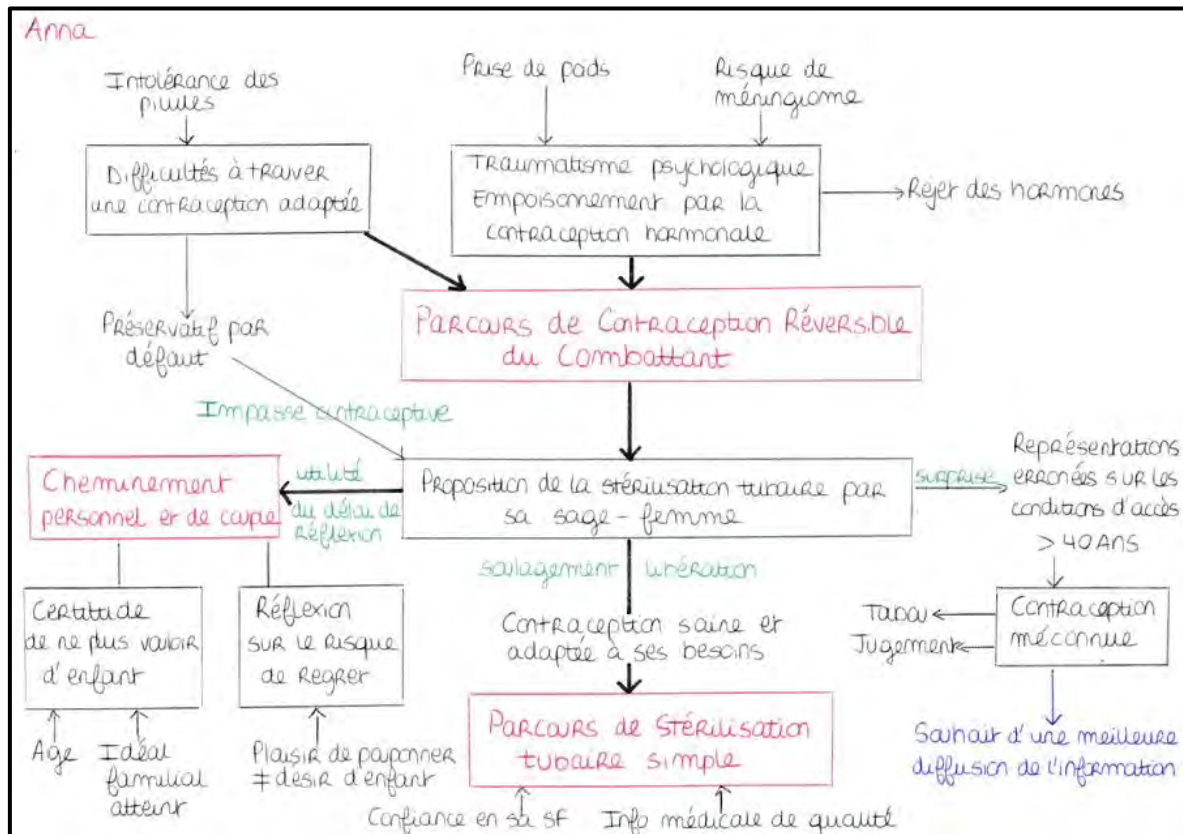 Anna
Intolérance des
pilules
Prise de poids
Risque de
méningiome
Difficultés à trouver
une contraception adaptée
Traumatisme psychologique
Empoisonnement par la
contraception hormonale
Rejet des hormones
Parcours de Contraception Réversible
du Combattant
Préservatif par
défaut
Impasse contraceptive
Cheminement
personnel et de couple
utilité
du délai de
réflexion
Proposition de la stérilisation tubaire par
sa sage-femme
surprise
Représentations
erronées sur les
conditions d'accès
> 40 ANS
soulagement libération
Certitude
de ne plus vouloir
d'enfant
Réflexion
sur le risque
de regret
Contraception saine et
adaptée à ses besoins
Tabou
Jugement
Contraception
méconnue
Age
Idéal
familial
atteint
Plaisir de pouponner
≠ désir d'enfant
Parcours de stérilisation
tubaire simple
Souhait d'une meilleure
diffusion de l'information
Confiance en sa SF
Info médicale de qualité